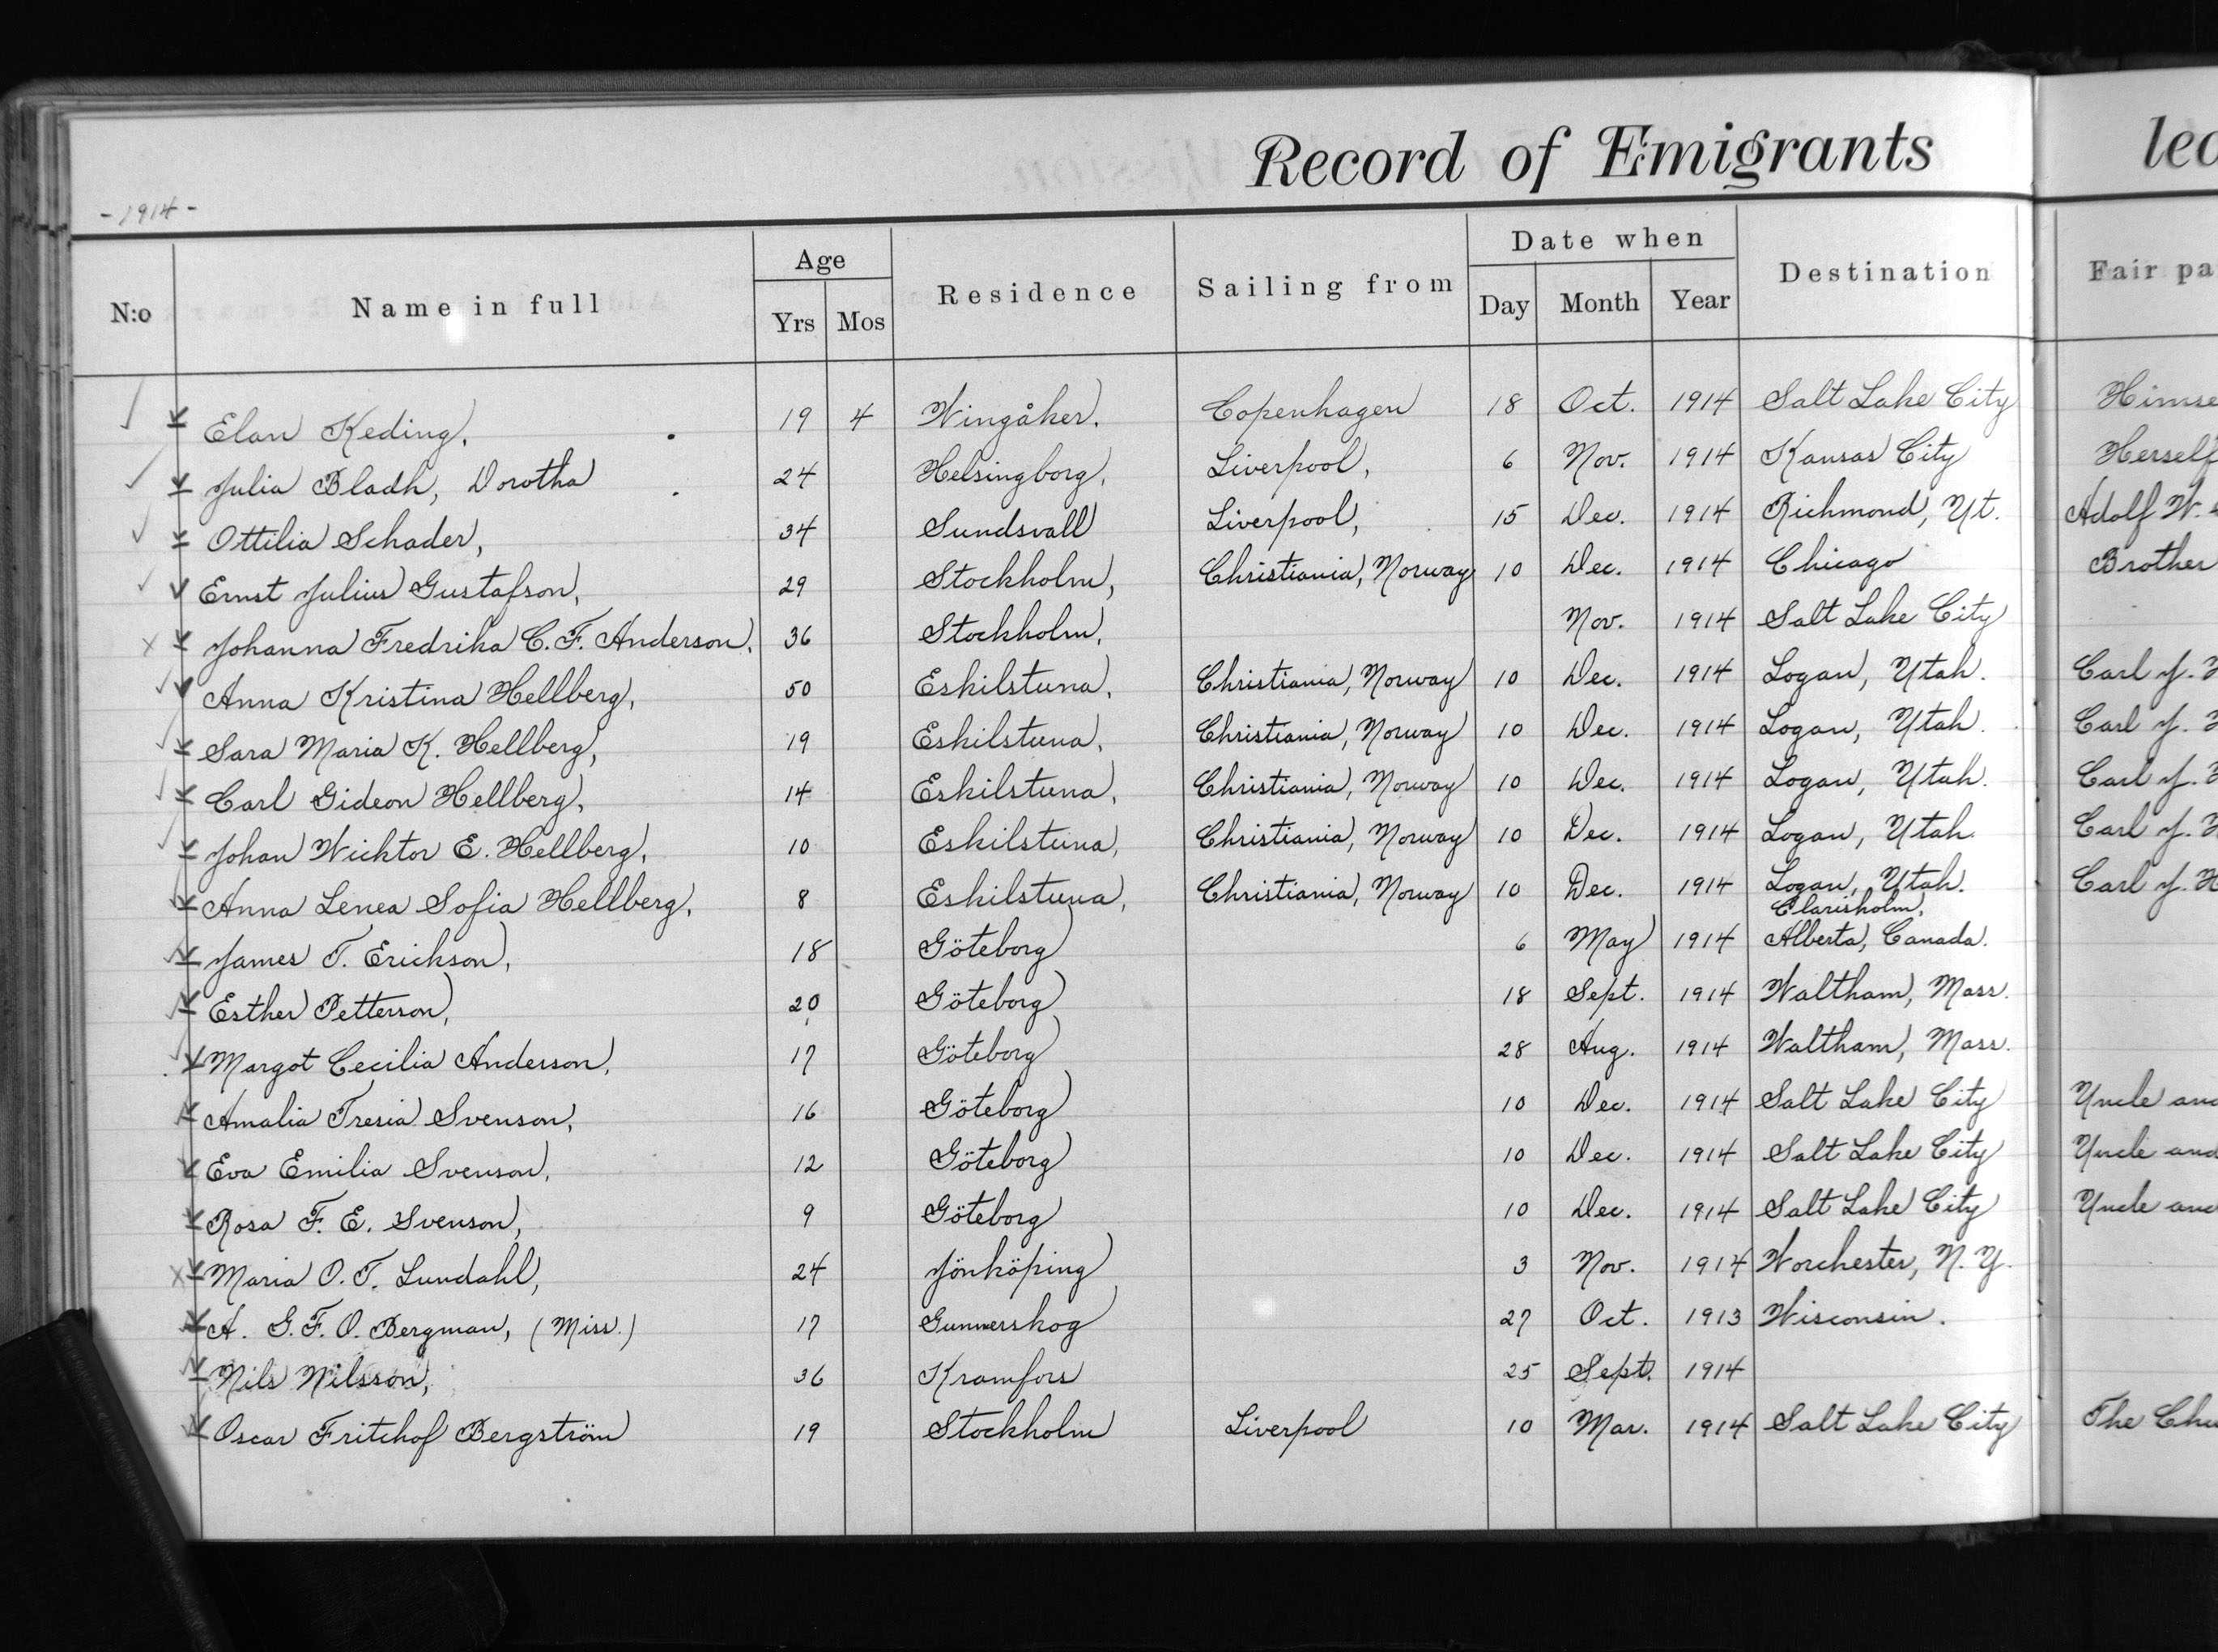 Record of Emigrants
- 1914 -
N:o Name in full Age Yrs Mos Residence Sailing from Date when Day Month Year Destination Fair
Elan Keding, 19 4 Wingåker, Copenhagen 18 Oct. 1914 Salt Lake City
Julia Bladh, Dorotha 24 Helsingborg, Liverpool, 6 Nov. 1914 Kansas City Herself
Ottilia Schader, 34 Sundsvall Liverpool, 15 Dec. 1914 Richmond, Ut. Adolf W.
Ernst Julius Gustafson, 29 Stockholm, Christiania, Norway 10 Dec. 1914 Chicago Brother
Johanna Fredrika C. F. Anderson, 36 Stockholm, Nov. 1914 Salt Lake City
Anna Kristina Hellberg, 50 Eskilstuna, Christiania, Norway 10 Dec. 1914 Logan, Utah. Carl J.
Sara Maria K. Hellberg, 19 Eskilstuna, Christiania, Norway 10 Dec. 1914 Logan, Utah. Carl J.
Carl Gideon Hellberg, 14 Eskilstuna, Christiania, Norway 10 Dec. 1914 Logan, Utah. Carl J.
Johan Wicktor E. Hellberg, 10 Eskilstuna, Christiania, Norway 10 Dec. 1914 Logan, Utah. Carl J.
Anna Lenea Sofia Hellberg, 8 Eskilstuna, Christiania, Norway 10 Dec. 1914 Logan, Utah. Carl J. H
Clarisholm,
James T. Erickson, 18 Göteborg 6 May 1914 Alberta, Canada.
Esther Petterson, 20 Göteborg 18 Sept. 1914 Waltham, Mass.
Margot Cecilia Anderson, 17 Göteborg 28 Aug. 1914 Waltham, Mass.
Amalia Tresia Svenson, 16 Göteborg 10 Dec. 1914 Salt Lake City Uncle and
Eva Emilia Svenson, 12 Göteborg 10 Dec. 1914 Salt Lake City Uncle and
Rosa F. E. Svenson, 9 Göteborg 10 Dec. 1914 Salt Lake City Uncle and
Maria O. T. Lundahl, 24 Jönköping 3 Nov. 1914 Worchester, N. Y.
A. G. F. O. Bergman, (Miss.) 17 Gunnerskog 27 Oct. 1913 Wisconsin.
Nils Nilsson, 36 Kramfors 25 Sept. 1914
Oscar Fritchof Bergström 19 Stockholm Liverpool 10 Mar. 1914 Salt Lake City The